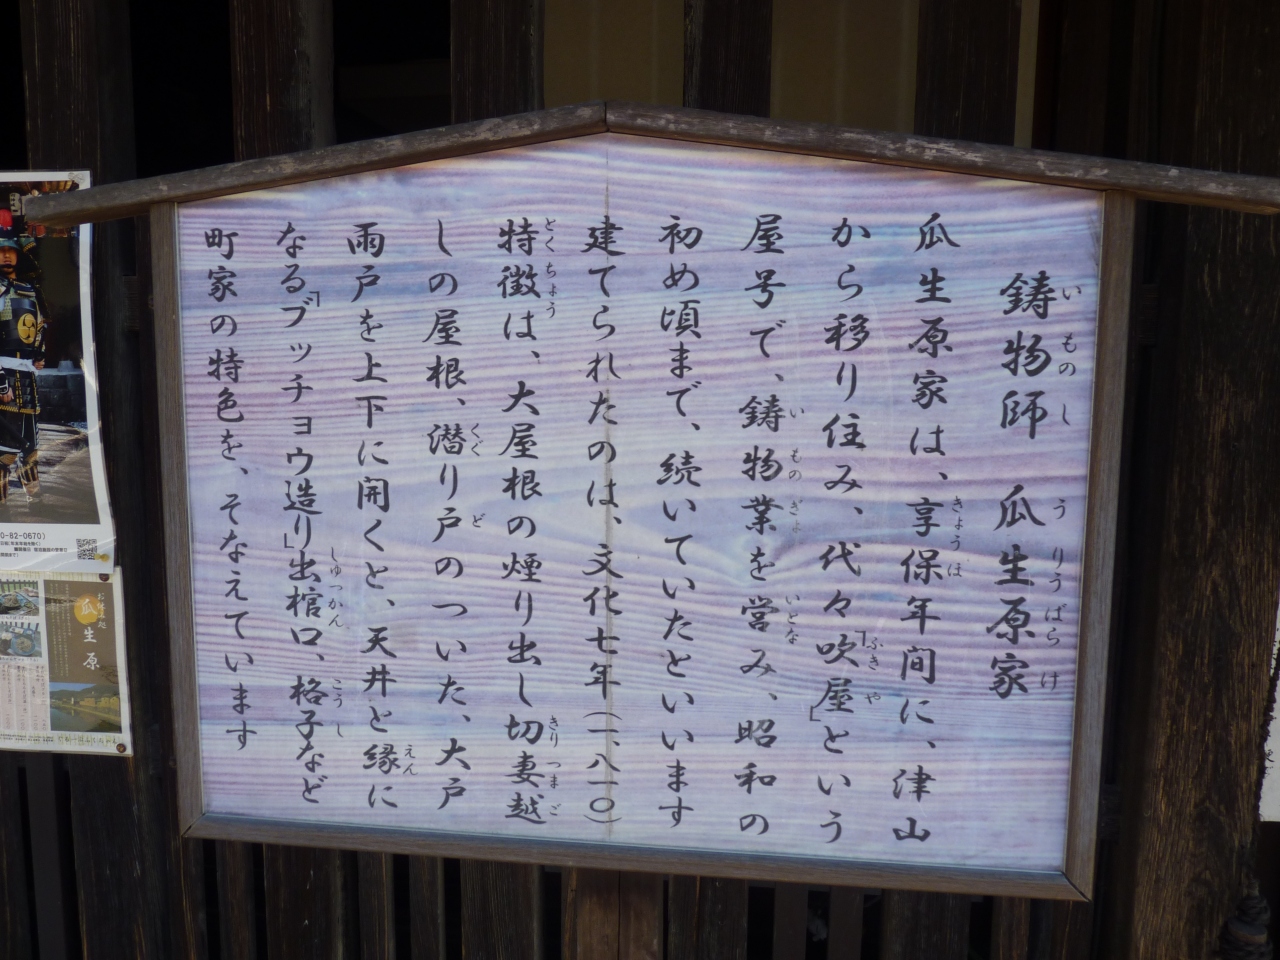 鋳物師 瓜生原家
瓜生原家は、享保年間に、津山
から移り住み、代々「吹屋」という
屋号で、鋳物業を営み、昭和の
初め頃まで、続いていたといいます
建てられたのは、文化七年(一八一〇)
特徴は、大屋根の煙り出し切妻越
しの屋根、潜り戸のついた、大戸
雨戸を上下に開くと、天井と縁に
なる「ブッチョウ造り」出棺口、格子など
町家の特色を、そなえています
いものし うりうばらけ
きょうほ
ふきや
いものぎょ
いとな
とくちょう
きりつまご
くぐ ど
えん
しゅっかん こうし
0-82-0670)
瓜生原